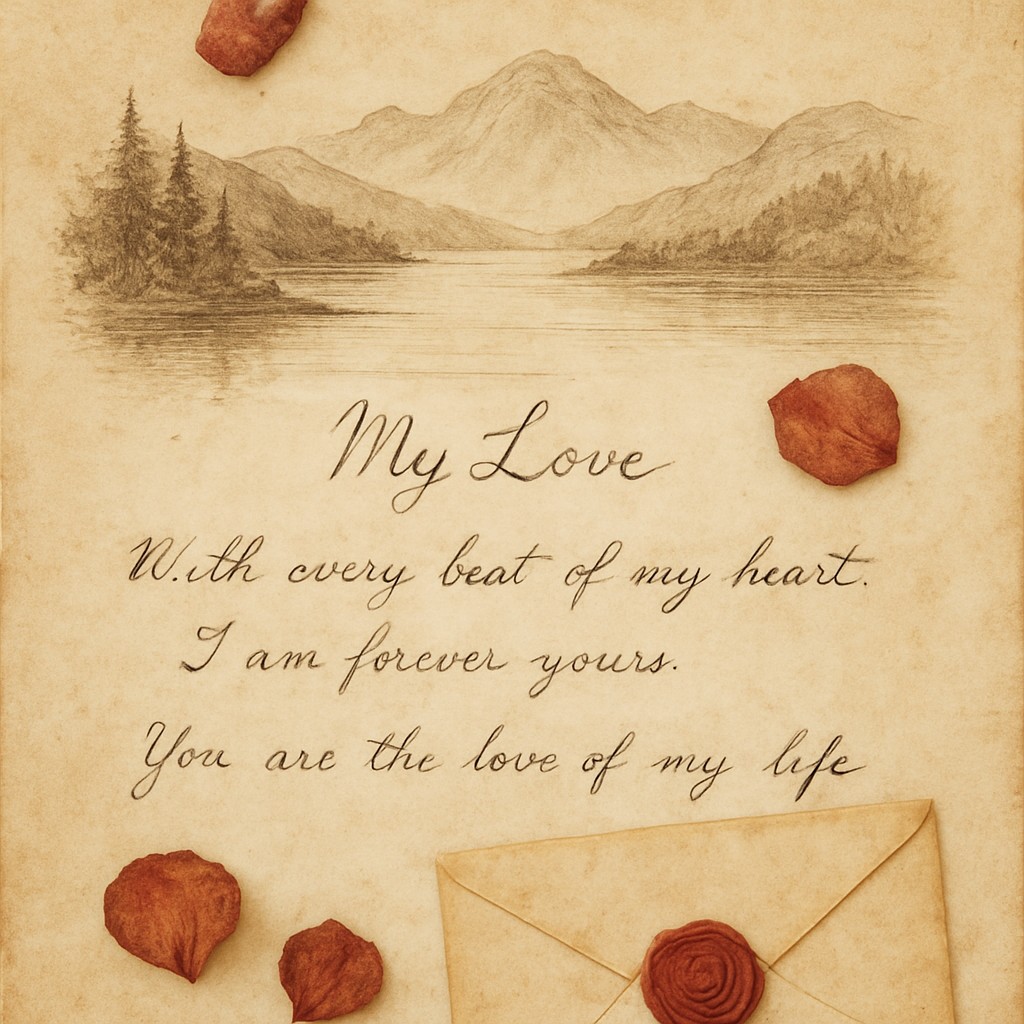 My Love
With every beat of my heart.
I am forever yours.
You are the love of my life